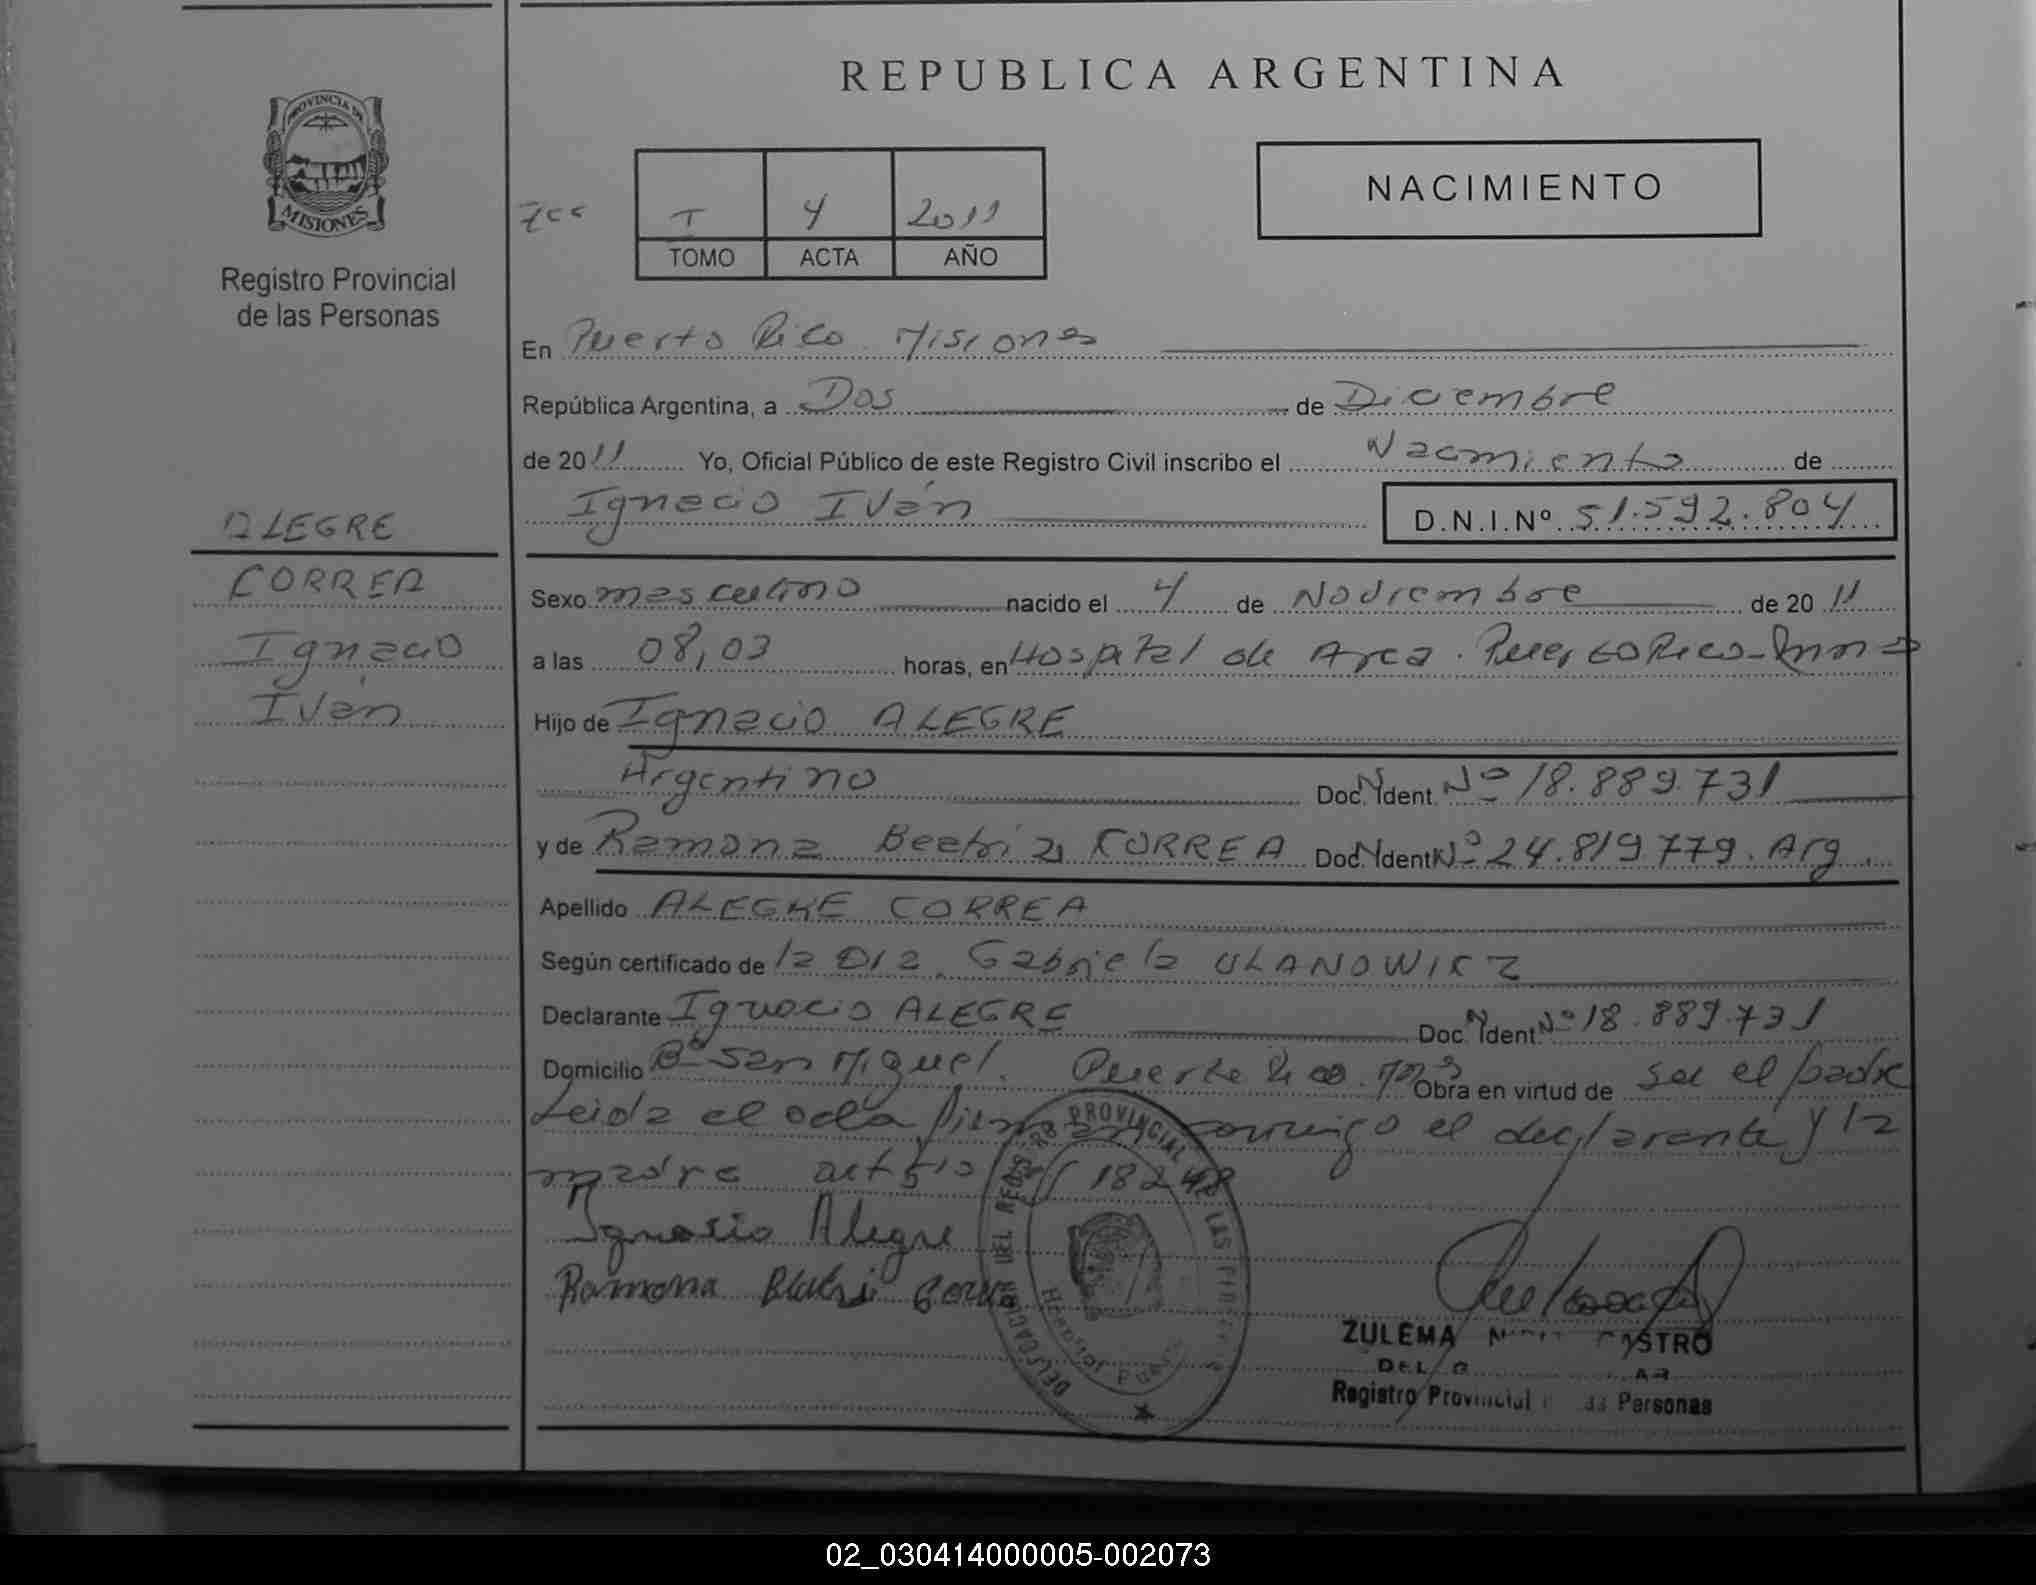 REPUBLICA ARGENTINA
PROVINCIA DE
MISIONES
Registro Provincial
de las Personas
NACIMIENTO
I 4 2011
TOMO ACTA AÑO
En Puerto Rico Misiones
República Argentina, a Dos de Diciembre
de 2011 Yo, Oficial Público de este Registro Civil inscribo el Nacimiento de
Ignacio Iván D.N.I.Nº 51.592.804
ALEGRE
CORREA
Ignacio
Iván
Sexo masculino nacido el 4 de Noviembre de 2011
a las 08,03 horas, en Hospital de Area. Puerto Rico-
Hijo de Ignacio ALEGRE
Argentino Doc. Ident. Nº 18.889.731
y de Ramona Beatriz CORREA Doc. Ident Nº 24.819.779. Arg.
Apellido ALEGRE CORREA
Según certificado de la Dra. Gabriela ULANOWICZ
Declarante Ignacio ALEGRE Doc. Ident Nº 18.889.731
Domicilio Bº San Miguel. Puerto Rico. Obra en virtud de ser el padre
Leida el acta conmigo el declarante y la
madre 18248
Ignacio Alegre
Ramona
DELEGACION DEL REGISTRO PROVINCIAL DE LAS PERSONAS
ZULEMA CASTRO
Registro Provincial Personas
02_030414000005-002073